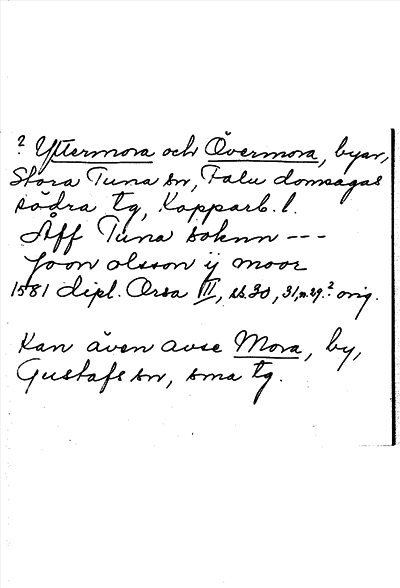 ? Yttermora och Övermora, byar,
Stora Tuna sn, Falu domsagas
södra tg, Kopparb. l.
Åff Tuna soknn ---
Joon olsson ij moor
1581 dipl. Orsa III, ss. 30, 31, n. 29.² orig.
Kan även avse Mora, by,
Gustafs sn, sma tg.